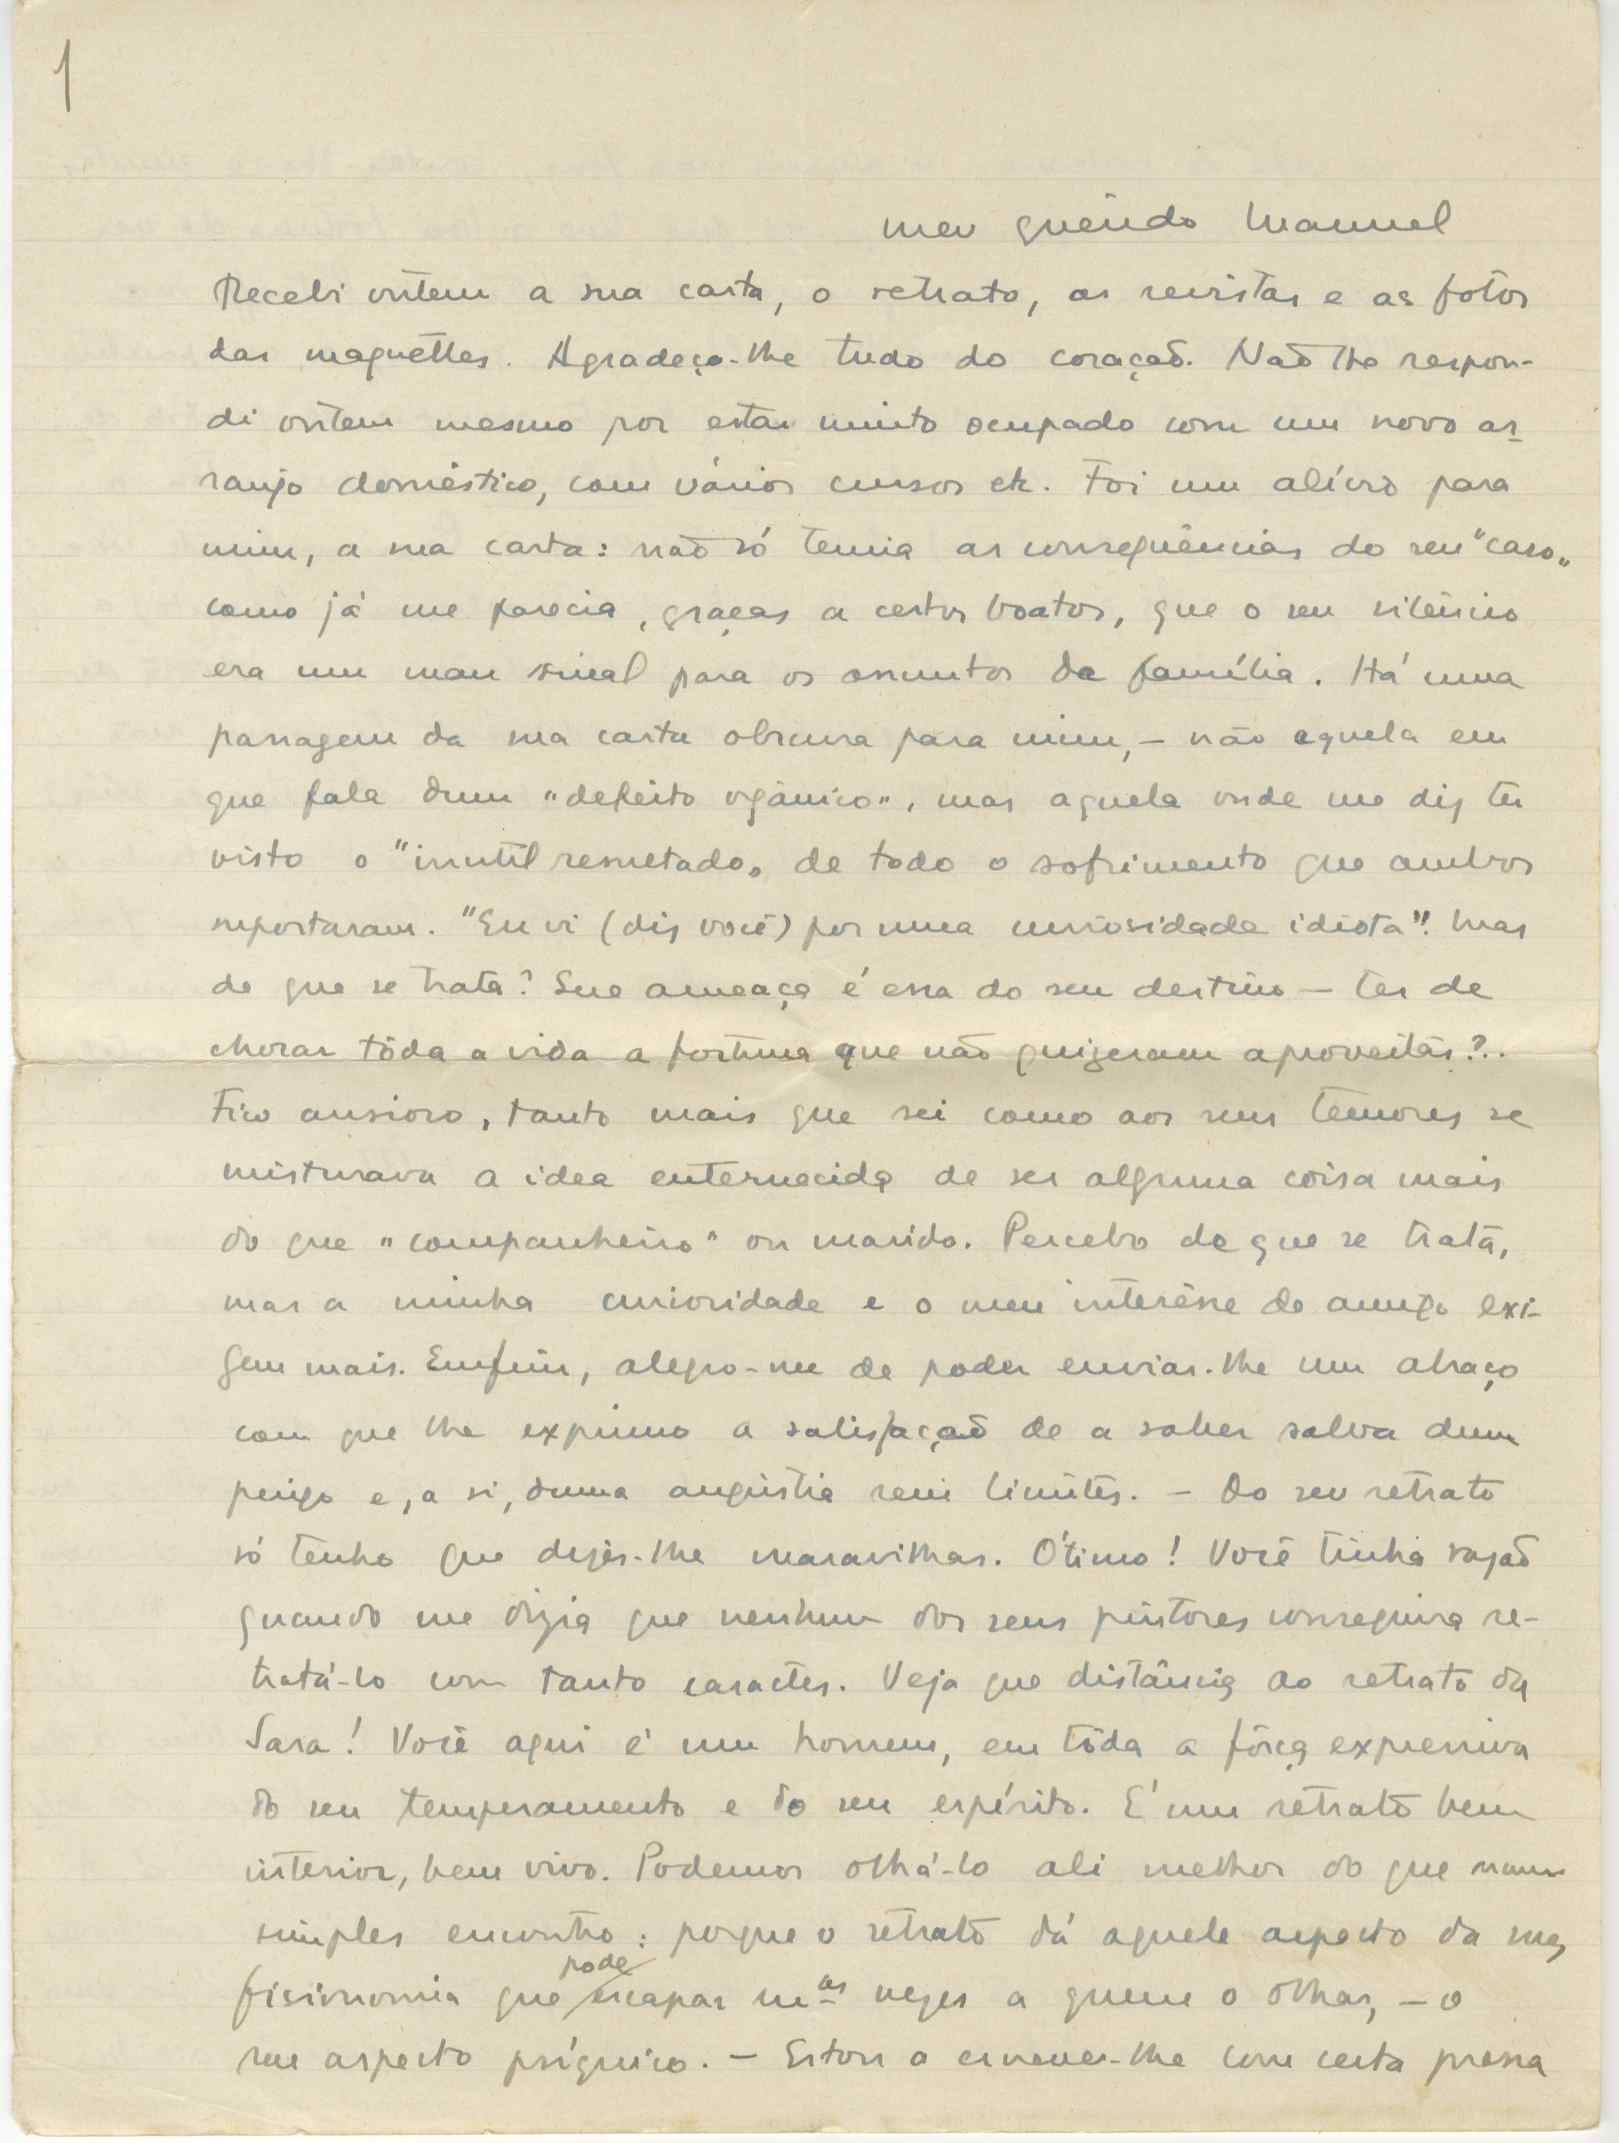 1
Meu querido Manuel
Recebi ontem a sua carta, o retrato, as revistas e as fotos
das maquettes. Agradeço-lhe tudo do coração. Não lhe respon-
di ontem mesmo por estar muito ocupado com um novo ar-
ranjo doméstico, com vários cursos etc. Foi um alívio para
mim, a sua carta: não só temia as consequências do seu "caso"
como já me parecia, graças a certos boatos, que o seu silêncio
era um mau sinal para os assuntos da família. Há uma
passagem da sua carta obscura para mim, – não aquela em
que fala dum "defeito orgânico", mas aquela onde me diz ter
visto o "inutil resultado" de todo o sofrimento que ambos
suportaram. "Eu vi (diz você) por uma curiosidade idiota"! Mas
de que se trata? Que ameaça é essa do seu destino – ter de
chorar tôda a vida a fortuna que não quizeram aproveitar?..
Fico ansioso, tanto mais que sei como aos seus temores se
misturava a idea enternecida de ser alguma coisa mais
do que "companheiro" ou marido. Percebo de que se trata,
mas a minha curiosidade e o meu interêsse de amigo exi-
gem mais. Emfim, alegro-me de poder enviar-lhe um abraço
com que lhe exprimo a satisfação de a saber salva dum
perigo e, a si, duma angústia sem limites. – Do seu retrato
só tenho que dizer-lhe maravilhas. Ótimo! Você tinha razão
quando me dizia que nenhum dos seus pintores conseguira re-
tratá-lo com tanto caracter. Veja que distância ao retrato da
Sara! Você aqui é um homem, em tôda a fôrça expressiva
do seu temperamento e do seu espírito. É um retrato bem
interior, bem vivo. Podemos olhá-lo ali melhor do que num
simples encontro: porque o retrato dá aquele aspecto da sua
fisionomia que pode escapar m.as vezes a quem o olhar, – o
seu aspecto psíquico. – Estou a escrever-lhe com certa pressa